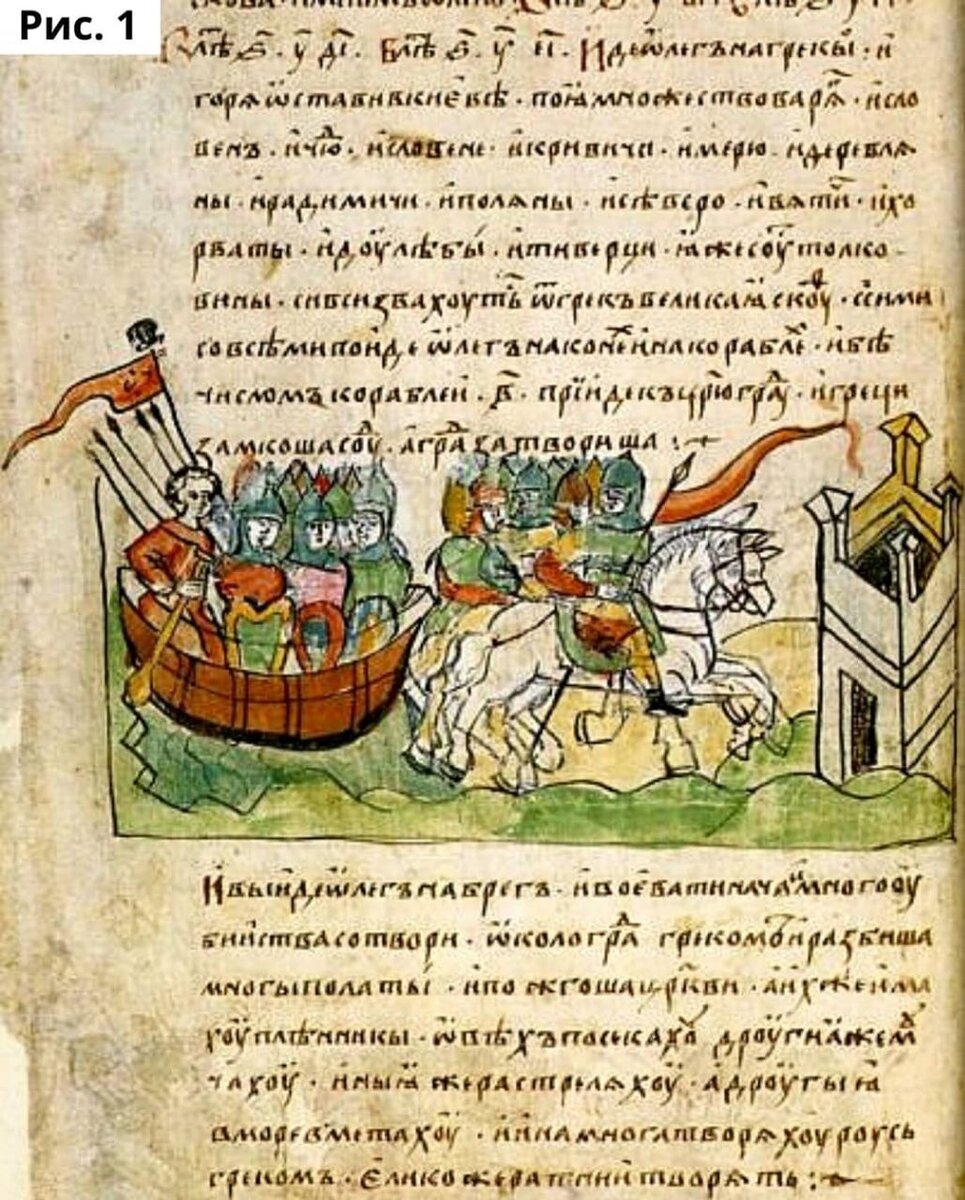 Рис. 1
в̾ лѣ҃ ҂ѕ҃. у҃ді. В лѣ҃ ҂ѕ҃. у҃ еі. Иде ѿлегъ на грекы. и
горѧ ѡстави в киевѣ. поꙗ множество варѧ. и сло
венъ. и чю. и словене. и кривичи. и мерю. и деревлѧ
ны. и радимичи. и полѧны. и сѣверо. и вѧтичи. и хо
рваты. и доулѣбы. и тиверци. ꙗже соу толко
вины. си вси звахоуть ѿ грекъ великаꙗ скоу. с сими
со всѣми поиде ѿлегъ на коне и на корабле. и бѣ
числомъ кораблеи. в҃. прїиде къ црюгра. и греци
замкоша соу. а гра затвориша :~
И выиде ѿлегъ на брегъ. и воевати нача. и много оу
биства сотвори. ѡколо гра грекомъ. и разбиша
многы полаты. и пожгоша цркви. а их же има
хоу плѣнникы. ѡвѣхъ посекахоу дроугиꙗ же м
чахоу. иныꙗ же растрелѧхоу. а дроугыꙗ
в море вметахоу. и ина многа творѧхоу роусь
грекомъ. елико же ратнии творѧть :~